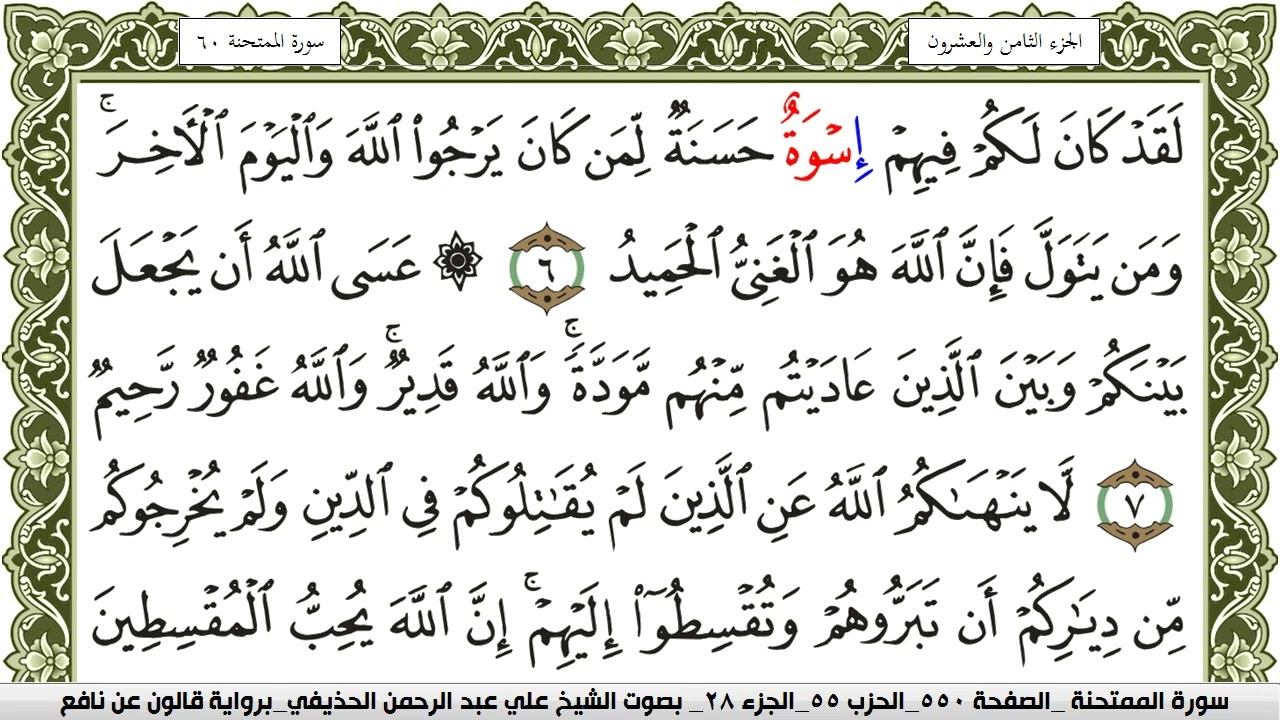 الجزء الثامن والعشرون
سورة الممتحنة ٦٠
لَقَدْ كَانَ لَكُمْ فِيهِمْ إِسْوَةٌ حَسَنَةٌ لِّمَن كَانَ يَرْجُوا۟ اُ۬للَّهَ وَالْيَوْمَ اَ۬لْأَخِرَۖ
وَمَن يَتَوَلَّ فَإِنَّ اَ۬للَّهَ هُوَ اَ۬لْغَنِيُّ اُ۬لْحَمِيدُ ٦ ۞ عَسَى اَ۬للَّهُ أَن يَجْعَلَ
بَيْنَكُمْ وَبَيْنَ اَ۬لَّذِينَ عَادَيْتُم مِّنْهُم مَّوَدَّةًۚ وَاللَّهُ قَدِيرٌۚ وَاللَّهُ غَفُورٌ رَّحِيمٌ
٧ لَّا يَنْهَىٰكُمُ اُ۬للَّهُ عَنِ اِ۬لَّذِينَ لَمْ يُقَٰتِلُوكُمْ فِي اِ۬لدِّينِ وَلَمْ يُخْرِجُوكُم
مِّن دِيَٰرِكُمْ أَن تَبَرُّوهُمْ وَتُقْسِطُوٓا۟ إِلَيْهِمْۚ إِنَّ اَ۬للَّهَ يُحِبُّ اُ۬لْمُقْسِطِينَ
سورة الممتحنة _الصفحة ٥٥٠_الحزب ٥٥_الجزء ٢٨_ بصوت الشيخ علي عبد الرحمن الحذيفي_برواية قالون عن نافع